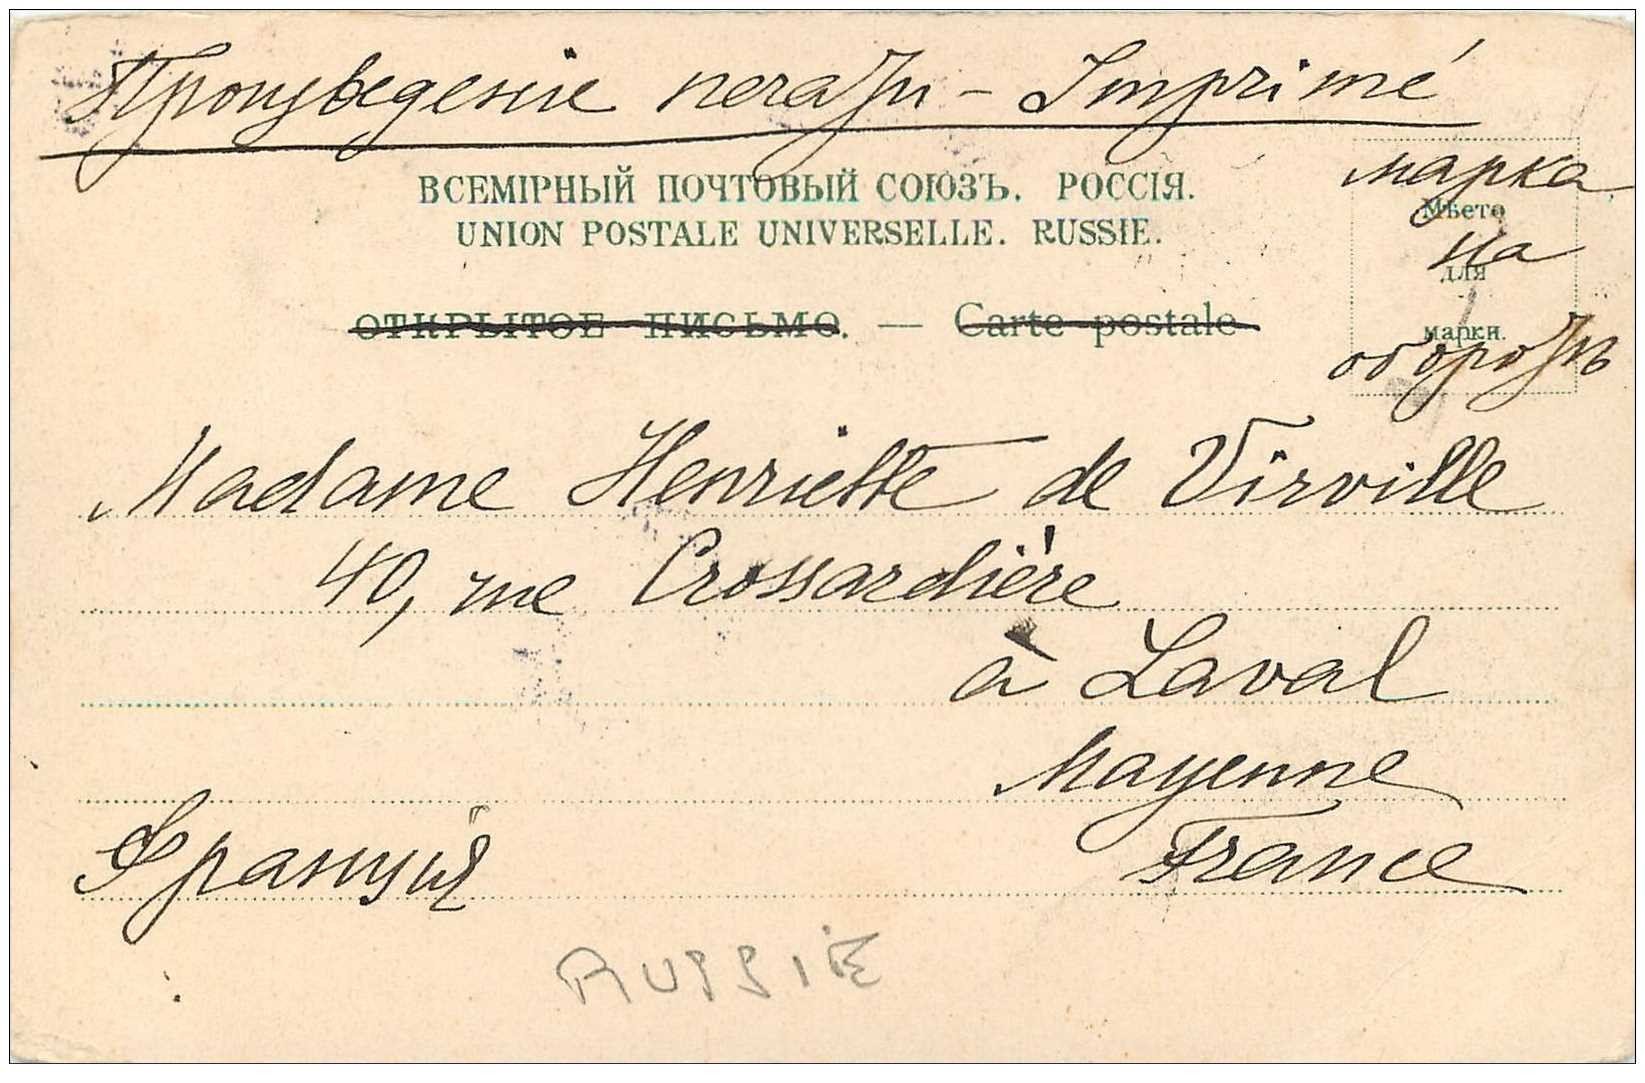 Произведеніе печати - Imprimé
ВСЕМІРНЫЙ ПОЧТОВЫЙ СОЮЗЪ. РОССІЯ.
UNION POSTALE UNIVERSELLE. RUSSIE.
ОТКРЫТОЕ ПИСЬМО. — Carte postale
марка
Мѣсто
на
для
марки.
оборотѣ
Madame Henriette de Virville
40, rue Crossardière
à Laval
Mayenne
Франція
France
RUSSIE